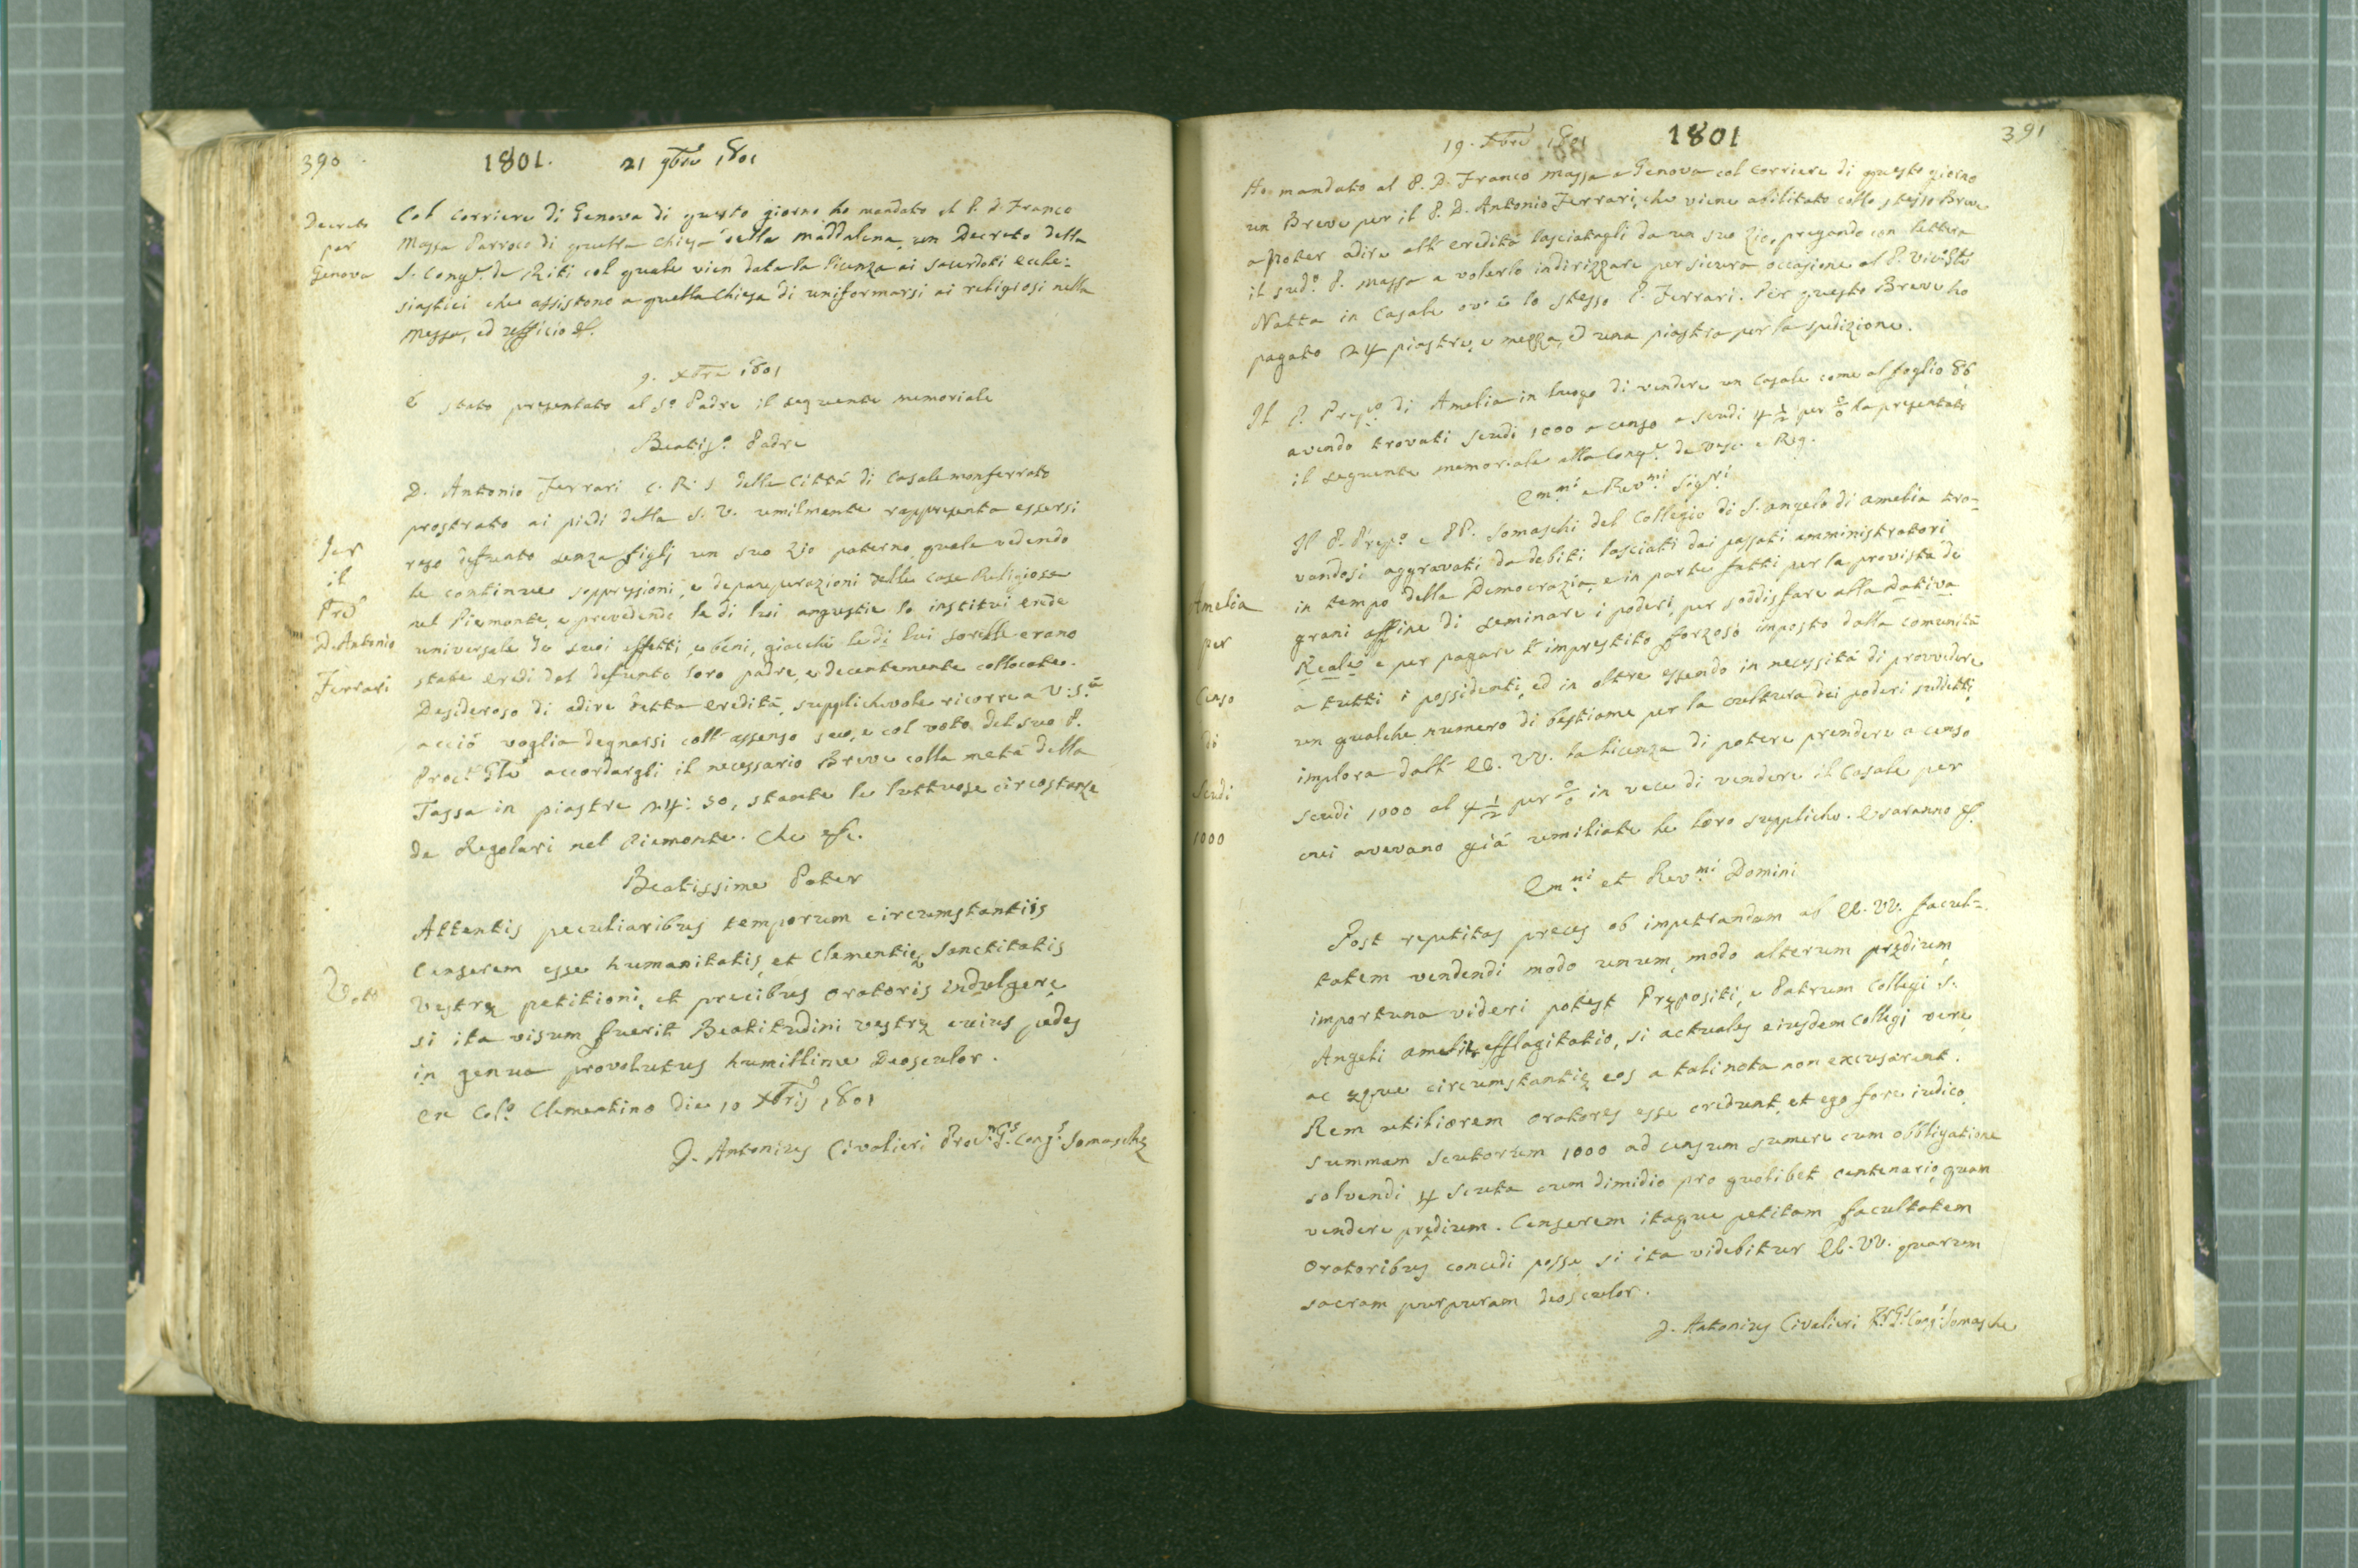 390
1801. 21 9bre 1801
Decreto
per
Genova
Col Corriere di Genova di questo giorno ho mandato al P. D. Franco
Massa Parroco di quella Chiesa della Maddalena, un Decreto della
S. Congne de Riti col quale vien data la licenza ai sacerdoti eccle=
siastici che assistono a quella Chiesa di uniformarsi ai religiosi nella
Messa, ed ufficio &.
9. Xbre 1801
È stato presentato al So Padre il seguente memoriale
Beatisso Padre
Per
il
Pre
D. Antonio
Ferrari
D. Antonio Ferrari C. R. S. della Città di Casale monferrato
prostrato ai piedi della S. V. umilmente rappresenta essersi
reso defunto senza figlj un suo Zio paterno, quale vedendo
le continue soppressioni, e depauperazioni delle Case Religiose
nel Piemonte, e prevedendo le di lui angustie lo instituì erede
universale de suoi effetti, e beni, giacchè le di lui sorelle erano
state eredi del defunto loro padre, e decentemente collocate.
Desideroso di adire detta eredità, supplichevole ricorre a V. S.à
acciò voglia degnarsi coll'assenso suo, e col voto del suo P.
Proc.r Gle accordargli il necessario Breve colla metà della
Tassa in piastre 24: 50, stante le luttuose circostanze
de Regolari nel Piemonte. Che &c.
Beatissime Pater
Voto
Attentis peculiaribus temporum circumstantiis
Censerem esse humanitatis, et Clementię Sanctitatis
Vestrę petitioni, et precibus Oratoris indulgere
si ita visum fuerit Beatitudini vestrę cuius pedes
in genua provolutus humillime Deosculor.
Ex Colo Clementino Die 10 Xbris 1801
D. Antonius Civalieri Procr. Gs. Congs Somaschę
19. Xbre 1801 1801 391
Ho mandato al P. D. Franco Massa a Genova col Corriere di questo giorno
un Breve per il P. D. Antonio Ferrari, che viene abilitato collo stesso Breve
a poter adire all'eredità lasciatagli da un suo Zio, pregando con lettera
il sudo P. Massa a volerlo indirizzare per sicura occasione al P.
Natta in Casale ov'è lo stesso P. Ferrari. Per questo Breve ho
pagato 24 piastre, e mezza, ed una piastra per la spedizione.
Il P. Prepto di Amelia in luogo di vendere un Casale come al foglio 86
avendo trovati scudi 1000 a censo a scudi 4 1/2 per % ha presentato
il seguente memoriale alla Congne de Vesc. e Reg.
Emmi e Revmi Sigri
Amelia
per
Censo
di
Scudi
1000
Il P. Prepo e PP. Somaschi del Collegio di S. Angelo di Amelia tro=
vandosi aggravati da debiti lasciati dai passati amministratori
in tempo della Democrazia, e in parte fatti per la provista de
grani affine di seminare i poderi, per soddisfare alla Dativa
Reale e per pagare l'imprestito forzoso imposto dalla Comunità
a tutti i possidenti, ed in oltre essendo in necessità di provvedere
un qualche numero di bestiame per la cultura dei poderi suddetti,
implora dall'EE. VV. la licenza di potere prendere a censo
scudi 1000 al 4 1/2 per % in vece di vendere il Casale per
cui avevano già umiliate le loro suppliche. E saranno &.
Emmi et Revmi Domini
Post repetitas preces ob impetrandam ab EE. VV. facul=
tatem vendendi modo unum, modo alterum prędium,
importuna videri potest Pręposîti, e Patrum Collegi S.
Angeli Amelię efflagitatio, si actuales eiusdem Collegi veri
ac ęque circumstantię eos a tali nota non excusarent.
Rem utiliorem Oratores esse credunt, et ego fore iudico,
summam scutorum 1000 ad censum sumere cum obbligatione
solvendi 4 scuta cum dimidio pro quolibet centenario, quam
vendere prędium. Censerem itaque petitam facultatem
Oratoribus concedi posse si ita videbitur EE. VV. quarum
sacram purpuram deosculor.
D. Antonius Civalieri Pr. Gs. Congs Somasche